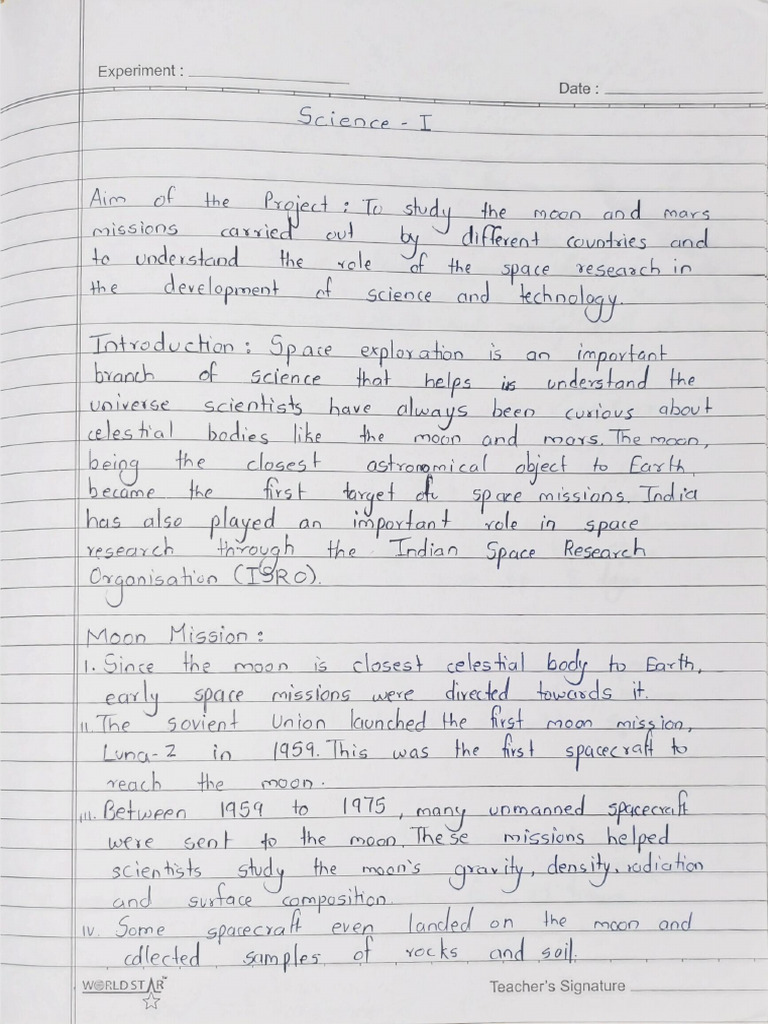 Experiment :
Date :
Science - I
Aim of the Project : To study the moon and mars
missions carried out by different countries and
to understand the role of the space research in
the development of science and technology.
Introduction : Space exploration is an important
branch of science that helps us understand the
universe scientists have always been curious about
celestial bodies like the moon and mars. The moon,
being the closest astronomical object to Earth
became the first target of space missions. India
has also played an important role in space
research through the Indian Space Research
Organisation (ISRO).
Moon Mission :
I. Since the moon is closest celestial body to Earth,
early space missions were directed towards it.
II. The sovient Union launched the first moon mission,
Luna-2 in 1959. This was the first spacecraft to
reach the moon.
III. Between 1959 to 1975, many unmanned spacecraft
were sent to the moon. These missions helped
scientists study the moon's gravity, density, radiation
and surface composition.
IV. Some spacecraft even landed on the moon and
collected samples of rocks and soil.
WORLDSTAR™
Teacher's Signature